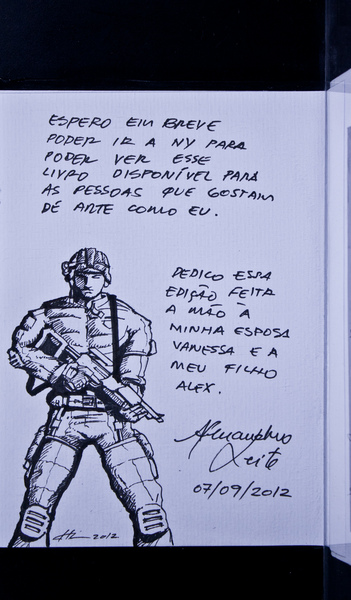 ESPERO EM BREVE
PODER IR A NY PARA
PODER VER ESSE
LIVRO DISPONÍVEL PARA
AS PESSOAS QUE GOSTAM
DE ARTE COMO EU.
DEDICO ESSA
EDIÇÃO FEITA
A MÃO À
MINHA ESPOSA
VANESSA E A
MEU FILHO
ALEX.
Leite
07/09/2012
2012